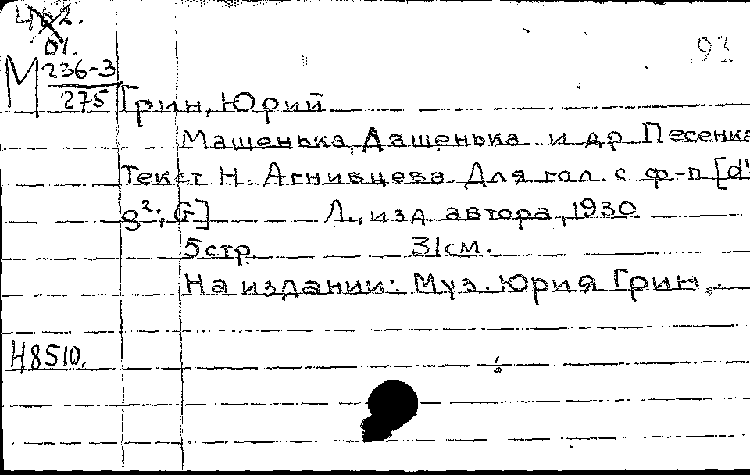 93
М 236-3
275
Грин, Юрий
Машенька, Дашенька и др Песенка
Текст Н. Агнивцева. Для гол. с ф-п [d¹
g²; G] Л., изд автора, 1930
5стр. 31см.
На издании: Муз. Юрия Грин.
48510.